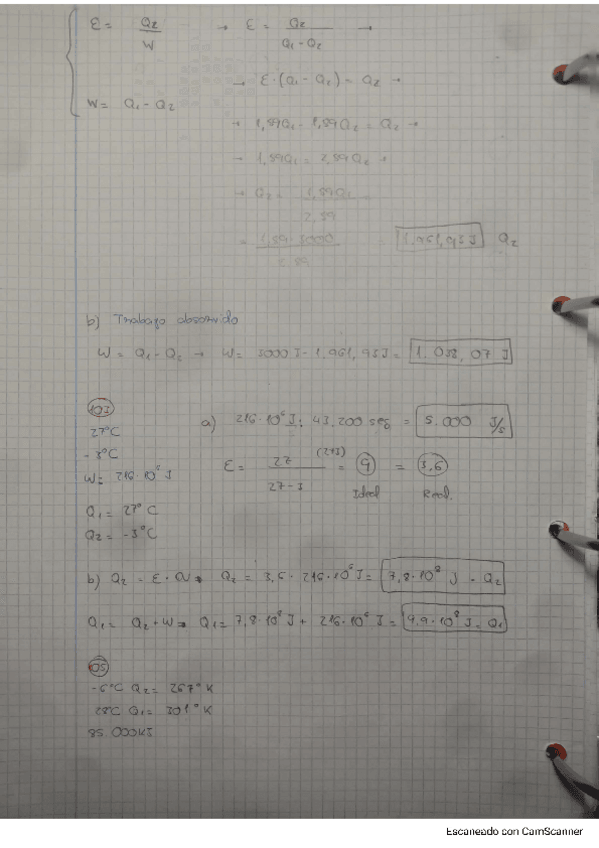 ε = Q2/W → ε = Q2/(Q1-Q2) →
→ ε·(Q1-Q2) = Q2 →
W = Q1-Q2
→ 1,89Q1 - 1,89Q2 = Q2 →
→ 1,89Q1 = 2,89Q2 →
→ Q2 = 1,89Q1/2,89
= 1,89·3000/2,89 = 1.961,93 J Q2
b) Trabajo absorvido
W = Q1-Q2 → W = 3000 J - 1.961,93 J = 1.038,07 J
a) 216·10⁶ J : 43,200 seg = 5.000 J/s
27°C
-3°C
W= 216·10⁶ J
ε = 27 (273)/27-3 = 9 = 3,6
Ideal Real.
Q1 = 27°C
Q2 = -3°C
b) Q2 = ε·W → Q2 = 3,6·216·10⁶ J = 7,8·10⁸ J = Q2
Q1 = Q2+W → Q1 = 7,8·10⁸ J + 216·10⁶ J = 9,9·10⁸ J = Q1
-6°C Q2 = 267°K
28°C Q1 = 301°K
85.000KJ
Escaneado con CamScanner